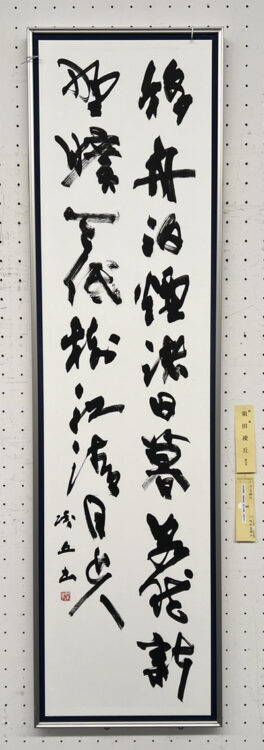 移舟泊煙渚日暮客愁新
野曠天低樹江清月近人
凌丘書
田凌丘